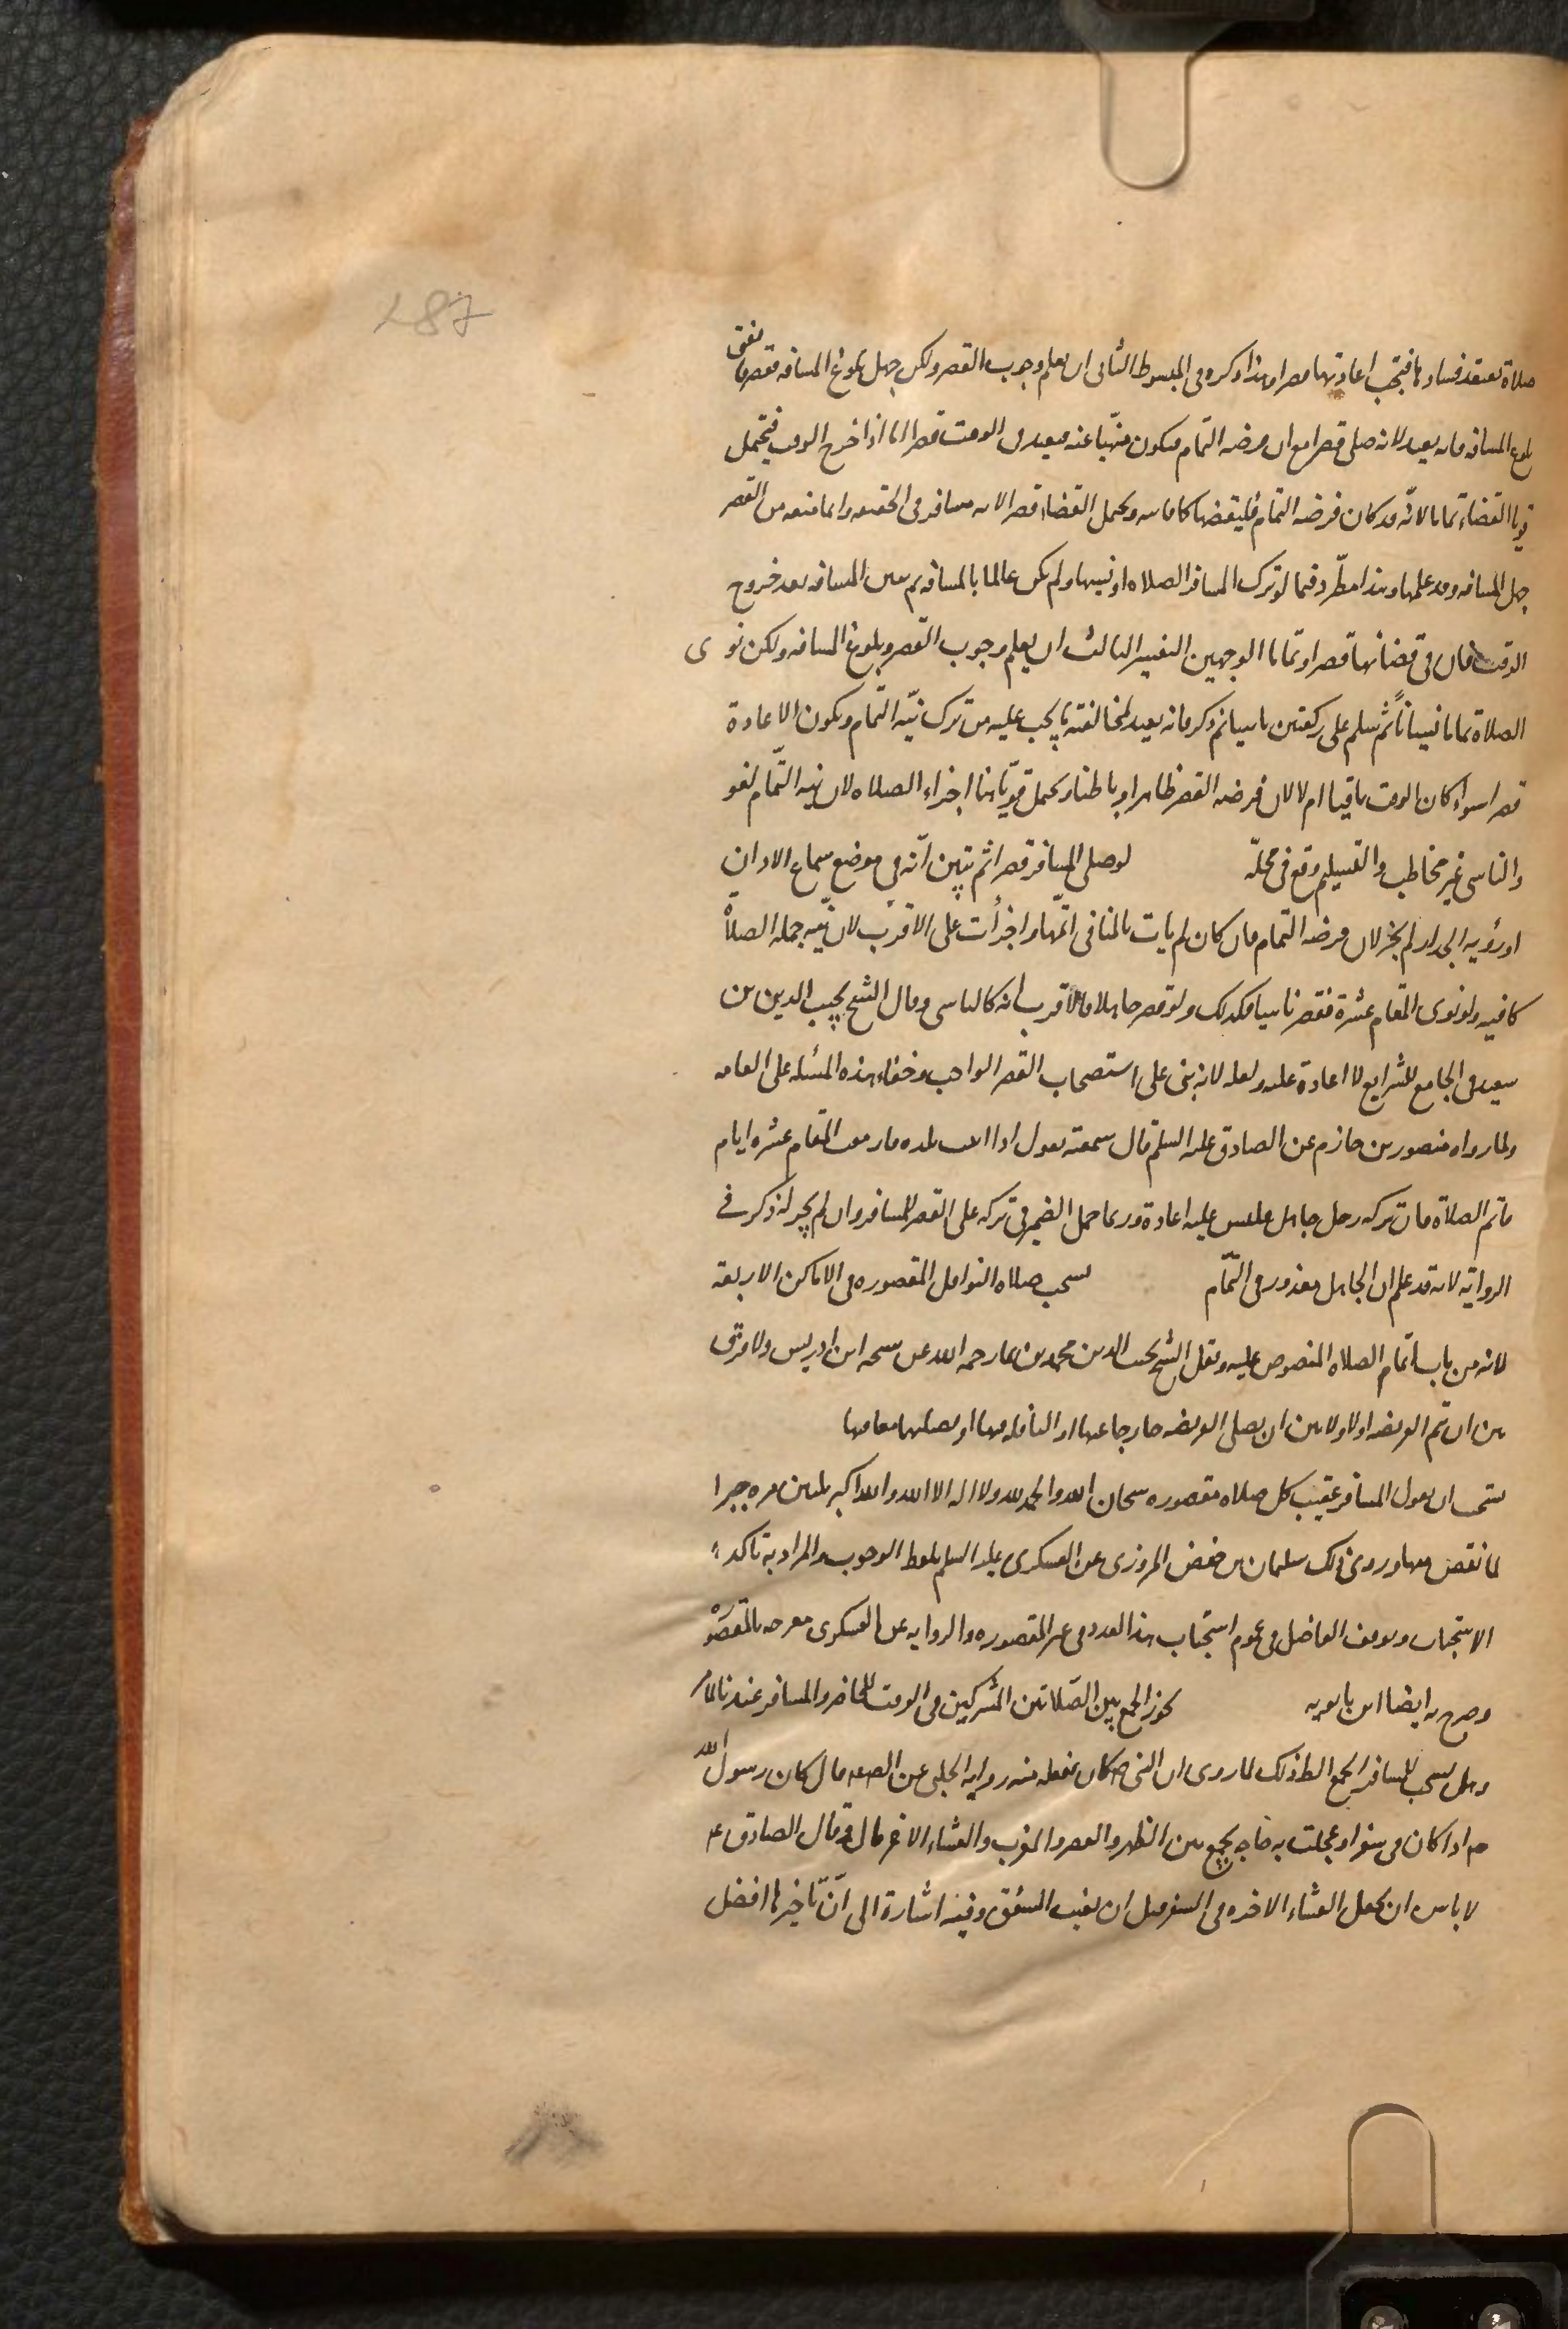 287
صلاة يعتقد فسادها فيجب اعادتها قصرا وهذا ذكره في المبسوط الثانى ان يعلم وجوب القصر ولكن جهل بلوغ المسافه فقصر فاتفق
بلوغ المسافه فانه يعيد لانه صلى قصرا مع ان فرضه التمام فيكون منهيا عنه فيعيد فى الوقت قصرا اما اذا خرج الوقت فيحتمل
قويا القضاء تماما لانّه قد كان فرضه التمام فليقضها كما فاتته ويحتمل القضاء قصرا لانه مسافر فى الحقيقه وانما منعه من القصر
جهل المسافه وقد علمها وهذا مطّرد فيما لو ترك المسافر الصلاه او نسيها ولم يكن عالما بالمسافه ثم تبين المسافه بعد خروج
الوقت فان في قضائها قصرا وتماما الوجهين التفسير الثالث ان يعلم وجوب القصر وبلوغ المسافه ولكن نوى
الصلاة تماما نسيانا ثم سلم على ركعتين ناسيا ثم ذكر فانه يعيد لمخالفته ما يجب عليه من ترك نيّه التمام ويكون الاعادة
قصرا سواء كان الوقت باقيا ام لا لان فرضه القصر ظاهرا وباطنا ويحتمل قويّا هنا اجزاء الصلاه لان نيه التّمام لغو
والناسى غير مخاطب والتسليم وقع فى محلّه لو صلى المسافر قصرا ثم تبين انّه في موضع سماع الاذان
او رؤيه الجدار لم يجز لان فرضه التمام فان كان لم يات بالمنافى اتمّها واجزأت على الاقرب لان نيّه جمله الصلاة
كافيه ولو نوى المقام عشرة فقصر ناسيا فكذلك ولو قصر جاهلا فالاقرب انه كالناسى وقال الشيخ نجيب الدين بن
سعيد فى الجامع للشرايع لا اعادة عليه ولعله لانه بنى على استصحاب القصر الواجب وخفاء هذه المسئله على العامه
ولما رواه منصور بن حازم عن الصادق عليه السلم قال سمعته يقول اذا اتيت بلده فازمعت المقام عشره ايام
فاتم الصلاة فان تركه رجل جاهل فليس عليه اعادة وربما حمل الضمير في تركه على القصر للمسافر وان لم يجر له ذكر في
الرواية لانه قد علم ان الجاهل معذور فى التّمام يستحب صلاه النوافل المقصوره فى الاماكن الاربعة
لانه من باب اتمام الصلاه المنصوص عليه ونقل الشيخ نجيب الدين محمد بن نما رحمه الله عن شيخه ابن ادريس ولا فرق
بين ان يتم الفريضه اولا ولا بين ان يصلى الفريضه خارجا عنها او النافله فيها او يصليهما معا فيها
يستحب ان يقول المسافر عقيب كل صلاه مقصوره سبحان الله والحمد لله ولا اله الا الله والله اكبر ثلثين مره جبرا
لما نقص منها وروى ذلك سليمان بن حفص المروزى عن العسكرى عليه السلم بلفظ الوجوب والمراد به تاكد
الاستحباب وتوقف الفاضل في عموم استحباب هذا العدد فى غير المقصوره والروايه عن العسكرى مصرحه بالمقصوره
وصرح به ايضا ابن بابويه يجوز الجمع بين الصّلاتين المشتركتين فى الوقت للحاضر والمسافر عندنا لما مر
وهل يستحب للمسافر الجمع الظ ذلك لما روى ان النبى ص كان يفعله منه روايه الحلبى عن الصادق قال كان رسول الله
ص اذا كان فى سفر او عجلت به حاجه يجمع بين الظهر والعصر والمغرب والعشاء الاخره قال وقال الصادق ع
لا باس ان يعجل العشاء الاخره فى السفر قبل ان يغيب الشفق وفيه اشارة الى انّ تاخيرها افضل